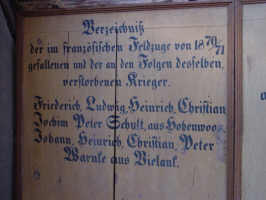 Verzeichniß
der im französischen Feldzuge von 1870/71
gefallenen und der an den Folgen desselben
verstorbenen Krieger.
Friederich, Ludwig, Heinrich, Christian
Jochim Peter Schult, aus Hohenwoos
Johann, Heinrich, Christian, Peter
Warnke aus Vielank.